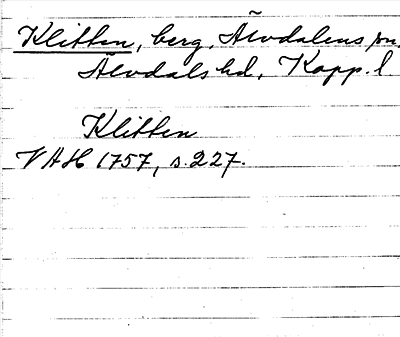 Klitten, berg, Älvdalens sn.
Älvdals hd, Kopp. l
Klitten
VAH 1757, s. 227.